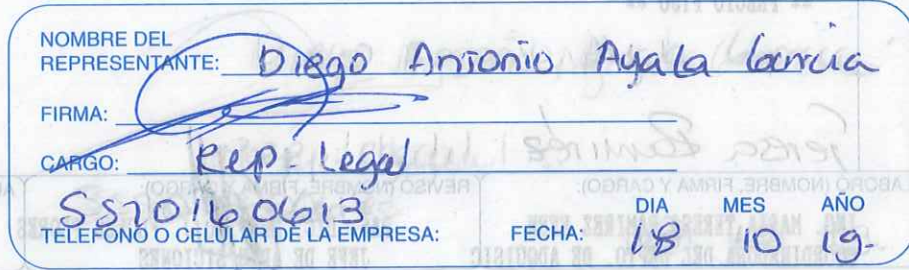 NOMBRE DEL
REPRESENTANTE: Diego Antonio Ayala Garcia
FIRMA:
CARGO: Rep. Legal
5520160613
TELEFONO O CELULAR DE LA EMPRESA:
FECHA: DIA MES AÑO
18 10 19.